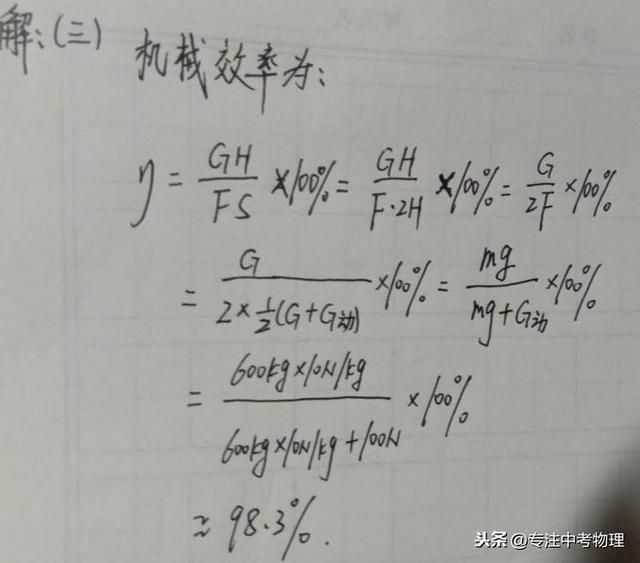 解:(三) 机械效率为:
η = GH/FS ×100% = GH/F·2H ×100% = G/2F ×100%
= G/2×½(G+G动) ×100% = mg/mg+G动 ×100%
= 600kg×10N/kg/600kg×10N/kg+100N ×100%
≈ 98.3%.
头条 @专注中考物理